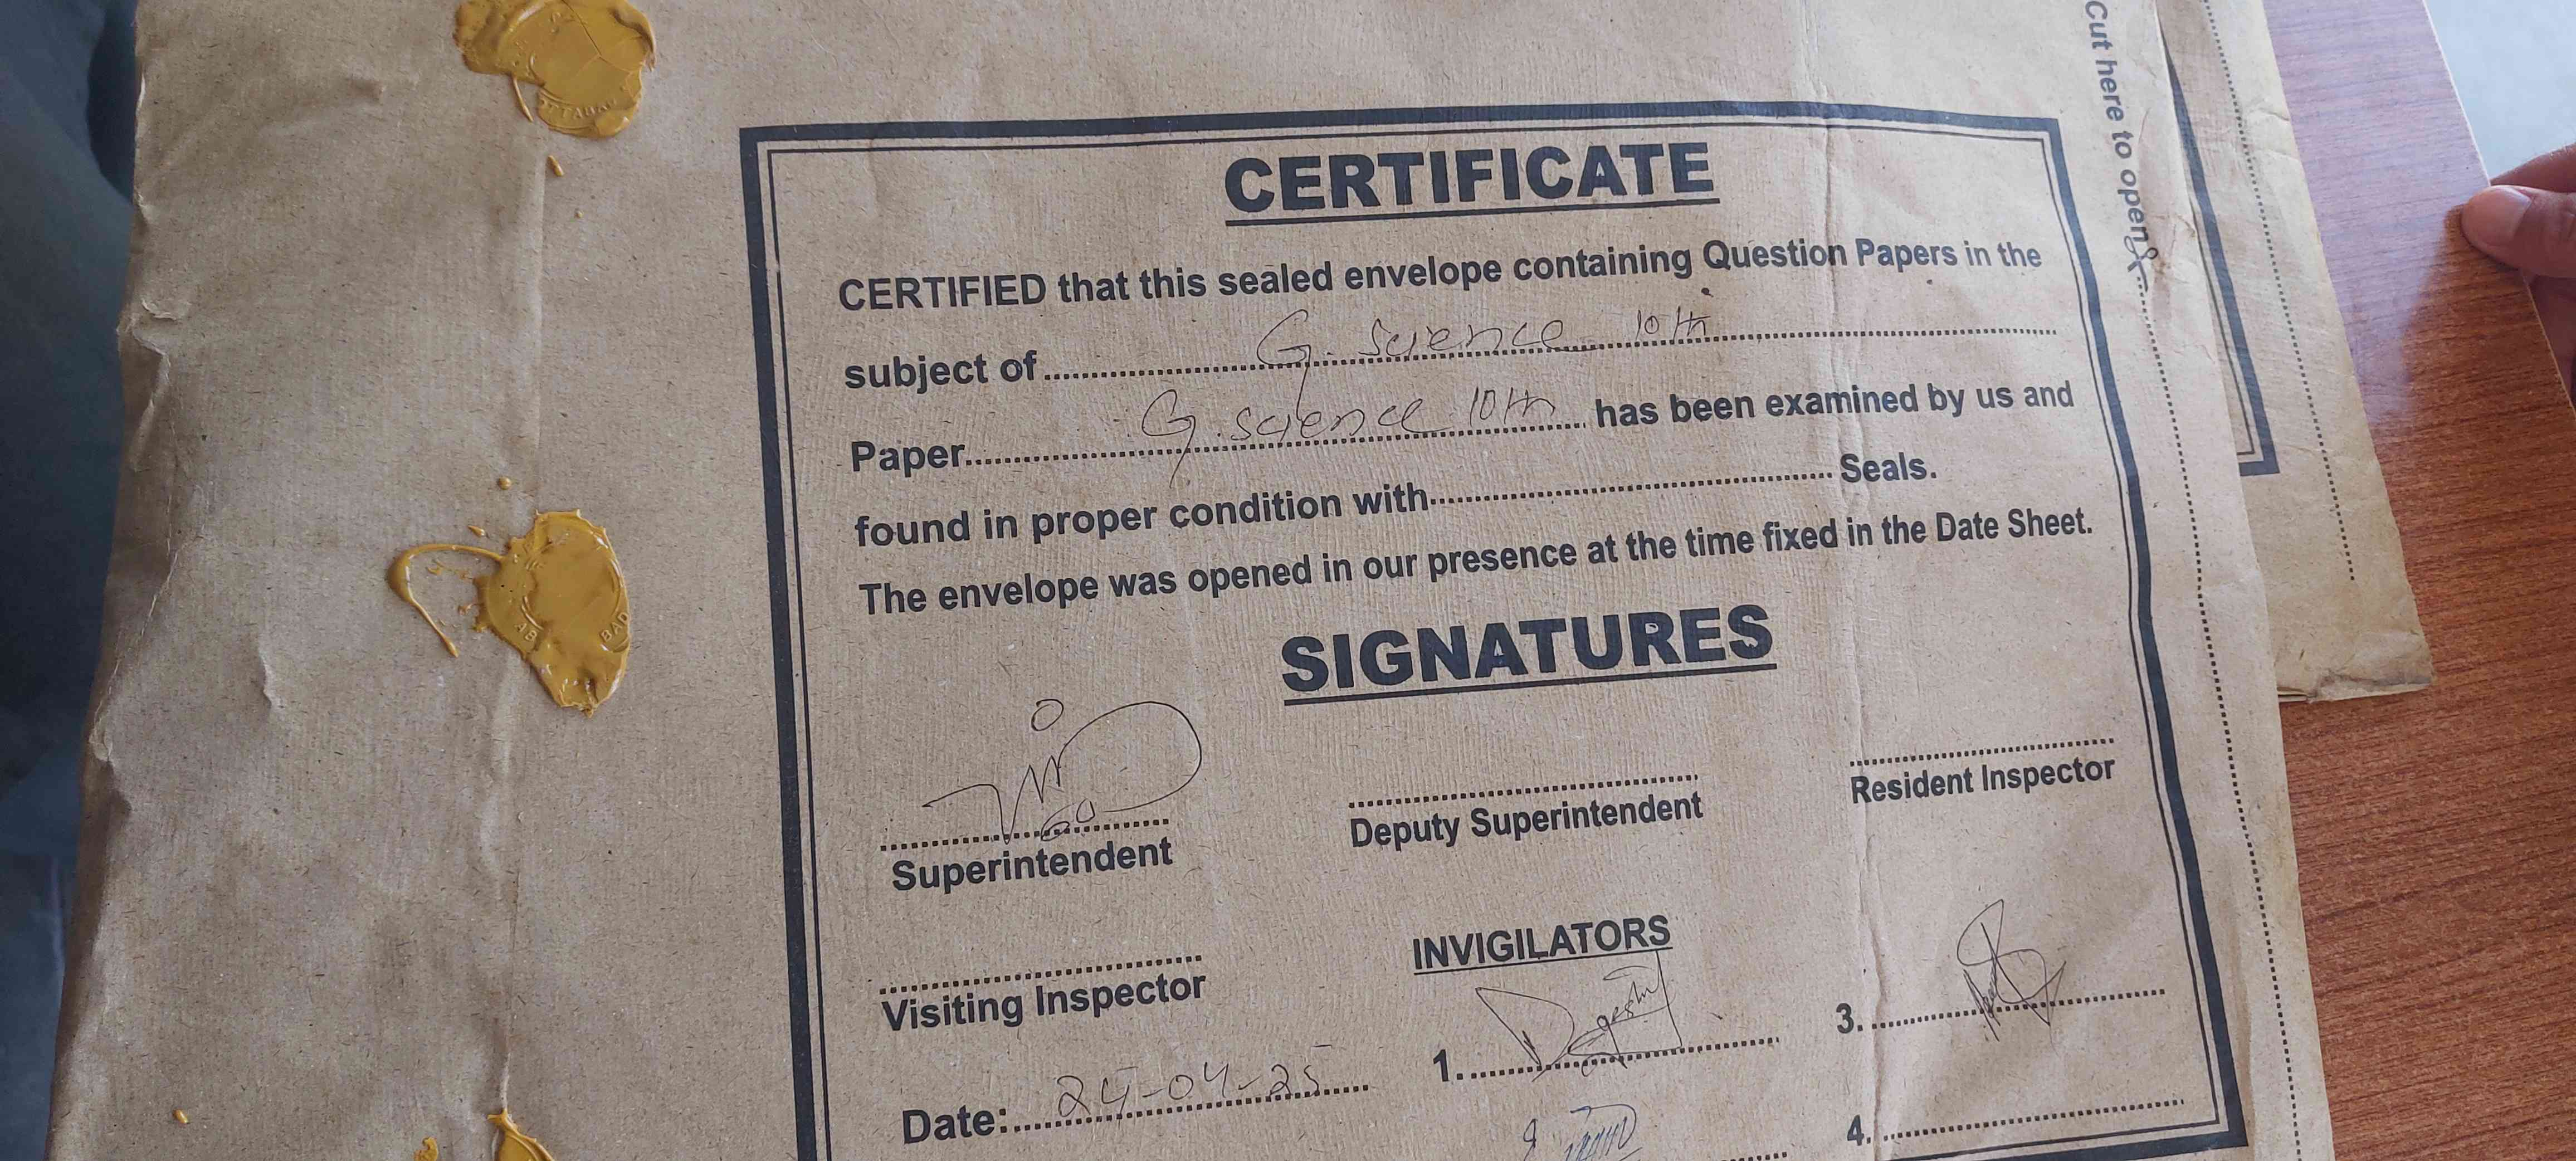 Cut here to open
CERTIFICATE
CERTIFIED that this sealed envelope containing Question Papers in the
subject of G. science 10th
Paper G. science 10th has been examined by us and
found in proper condition with Seals.
The envelope was opened in our presence at the time fixed in the Date Sheet.
SIGNATURES
Superintendent
Deputy Superintendent
Resident Inspector
Visiting Inspector
INVIGILATORS
1.
3.
Date: 24-04-25
4.